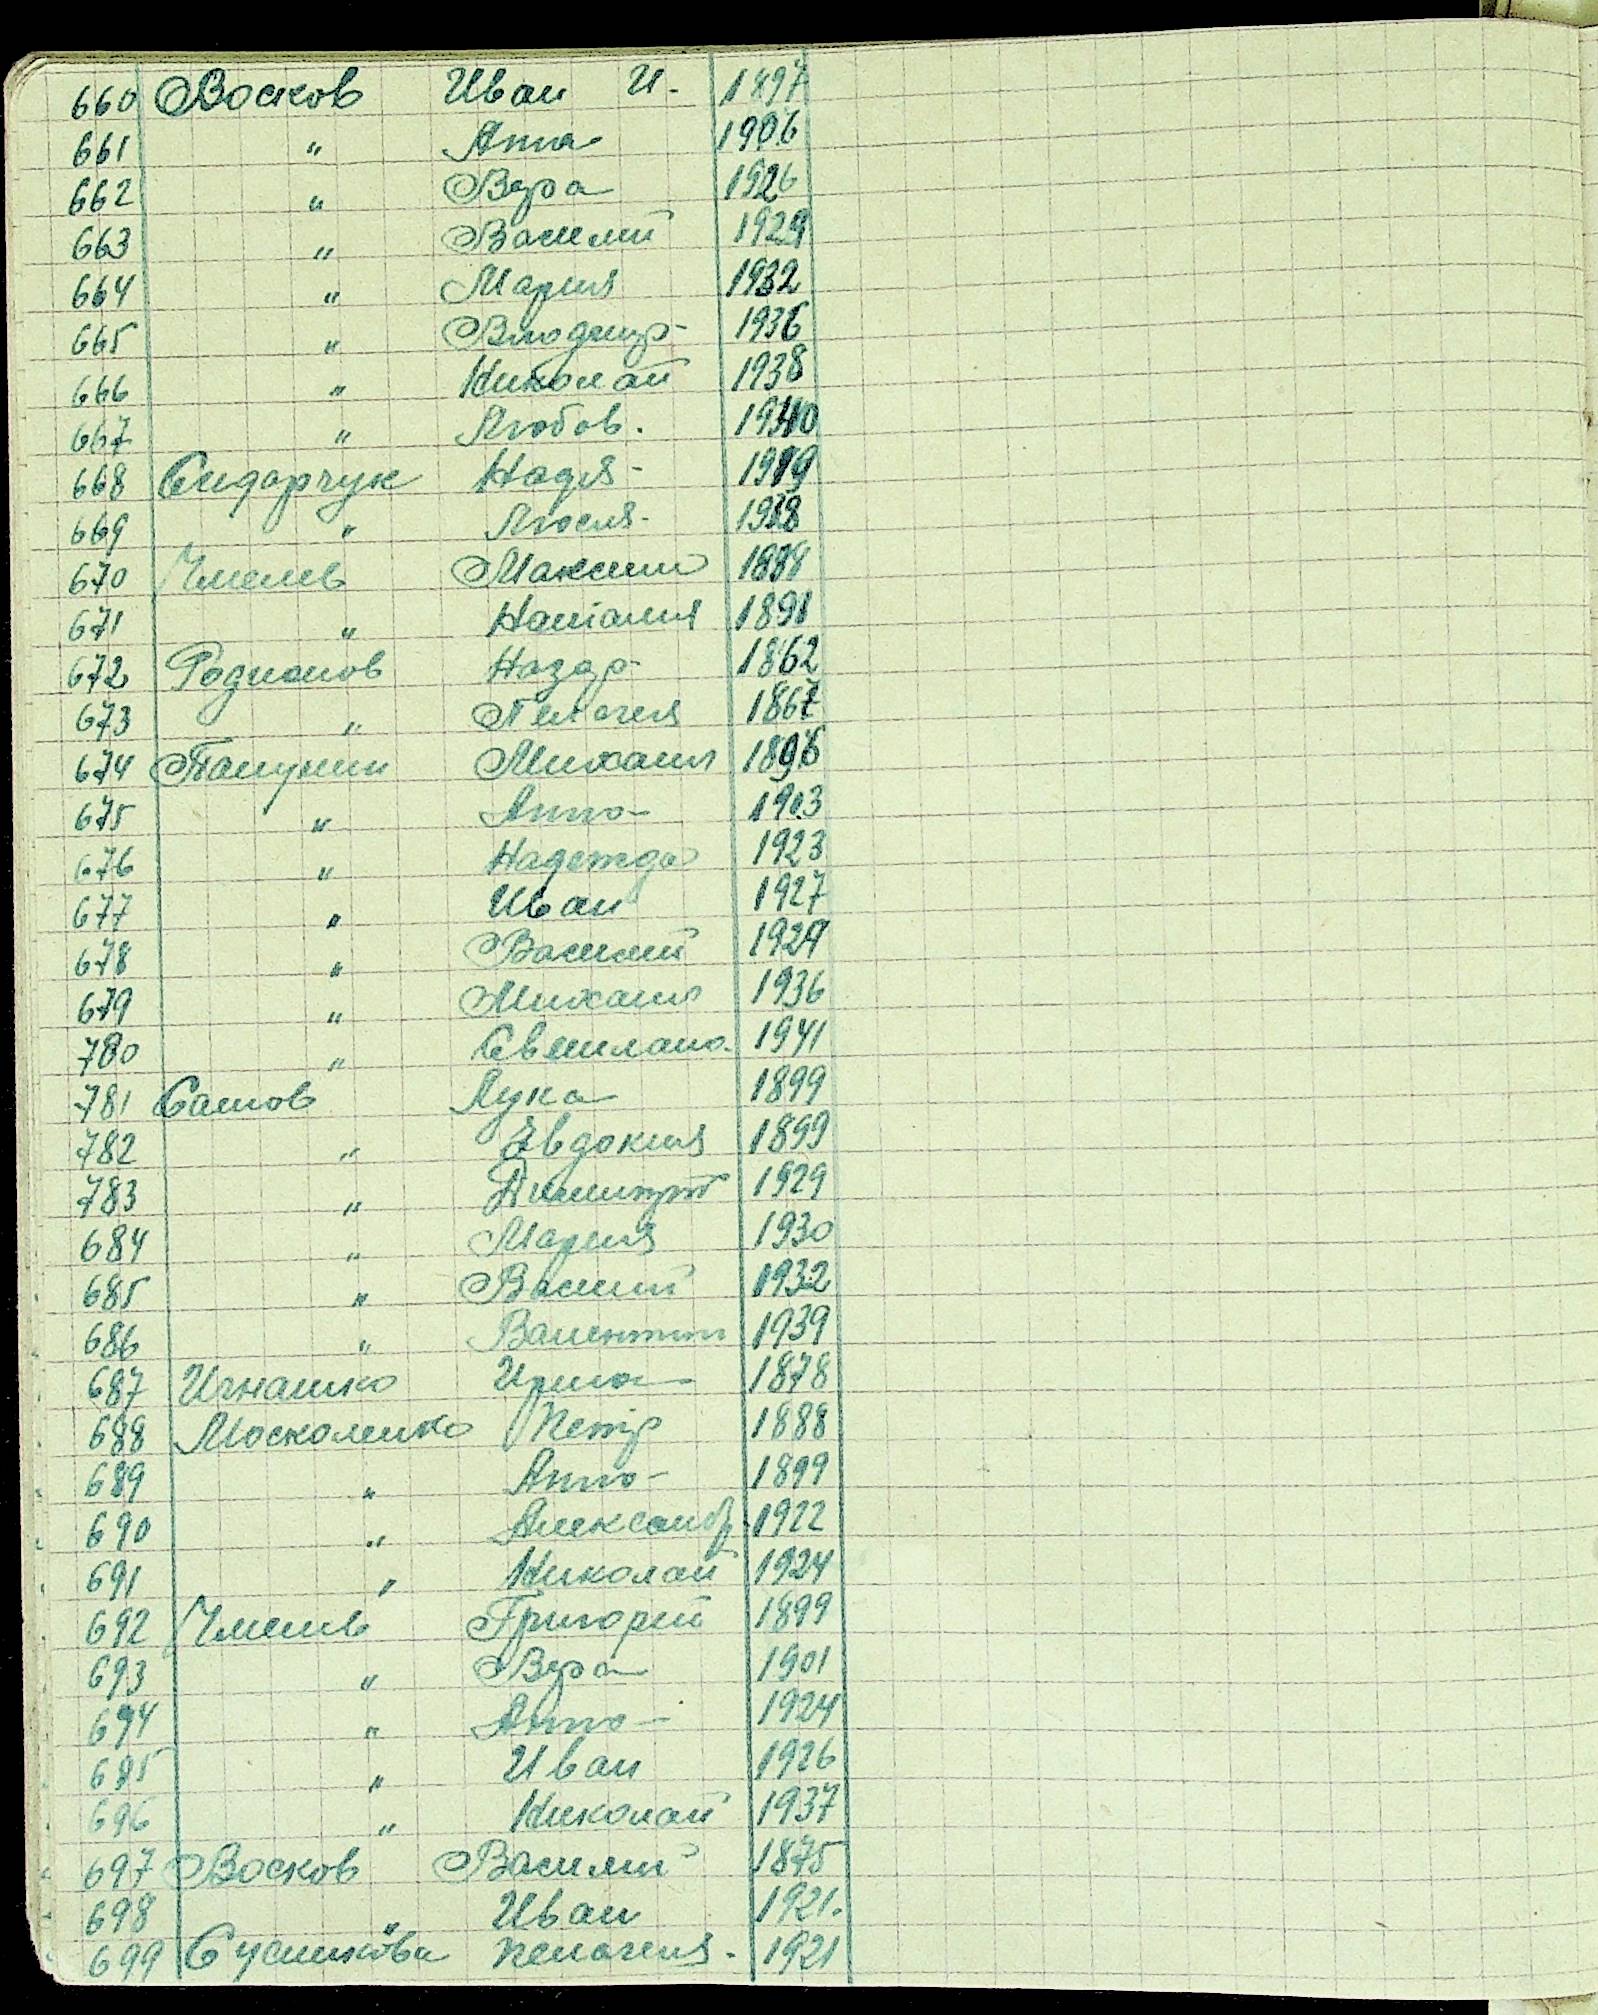 660 Восков Иван И. 1897
661 " Анна 1906
662 " Вера 1926
663 " Василий 1929
664 " Мария 1932
665 " Влодемир 1936
666 " Николай 1938
667 " Любов. 1940
668 Сидорчук Надя 1919
669 " Люся 1938
670 Чмелев Максим
671 " Наталия 1891
672 Родионов Назар 1862
673 " Пелагея
674 Папунин Михаил 1896
675 " Анна 1903
676 " Надежда 1923
677 " Иван 1927
678 " Василий 1929
679 " Михаил 1936
780 " Светлана 1941
781 Сатов Лука 1899
782 " Евдокия 1899
783 " Димитрий 1929
684 " Мария 1930
685 " Василий 1932
686 " Валентин 1939
687 Игнашко Ирина 1878
688 Москоленко Петр 1888
689 " Анна 1899
690 " Александр 1922
691 " Николай 1924
692 Чмелев Григорий 1899
693 " Вера 1901
694 " Анна 1924
695 " Иван 1926
696 " Николай 1937
697 Восков Василий 1875
698 " Иван 1921.
699 Сушикова Пелагея. 1921